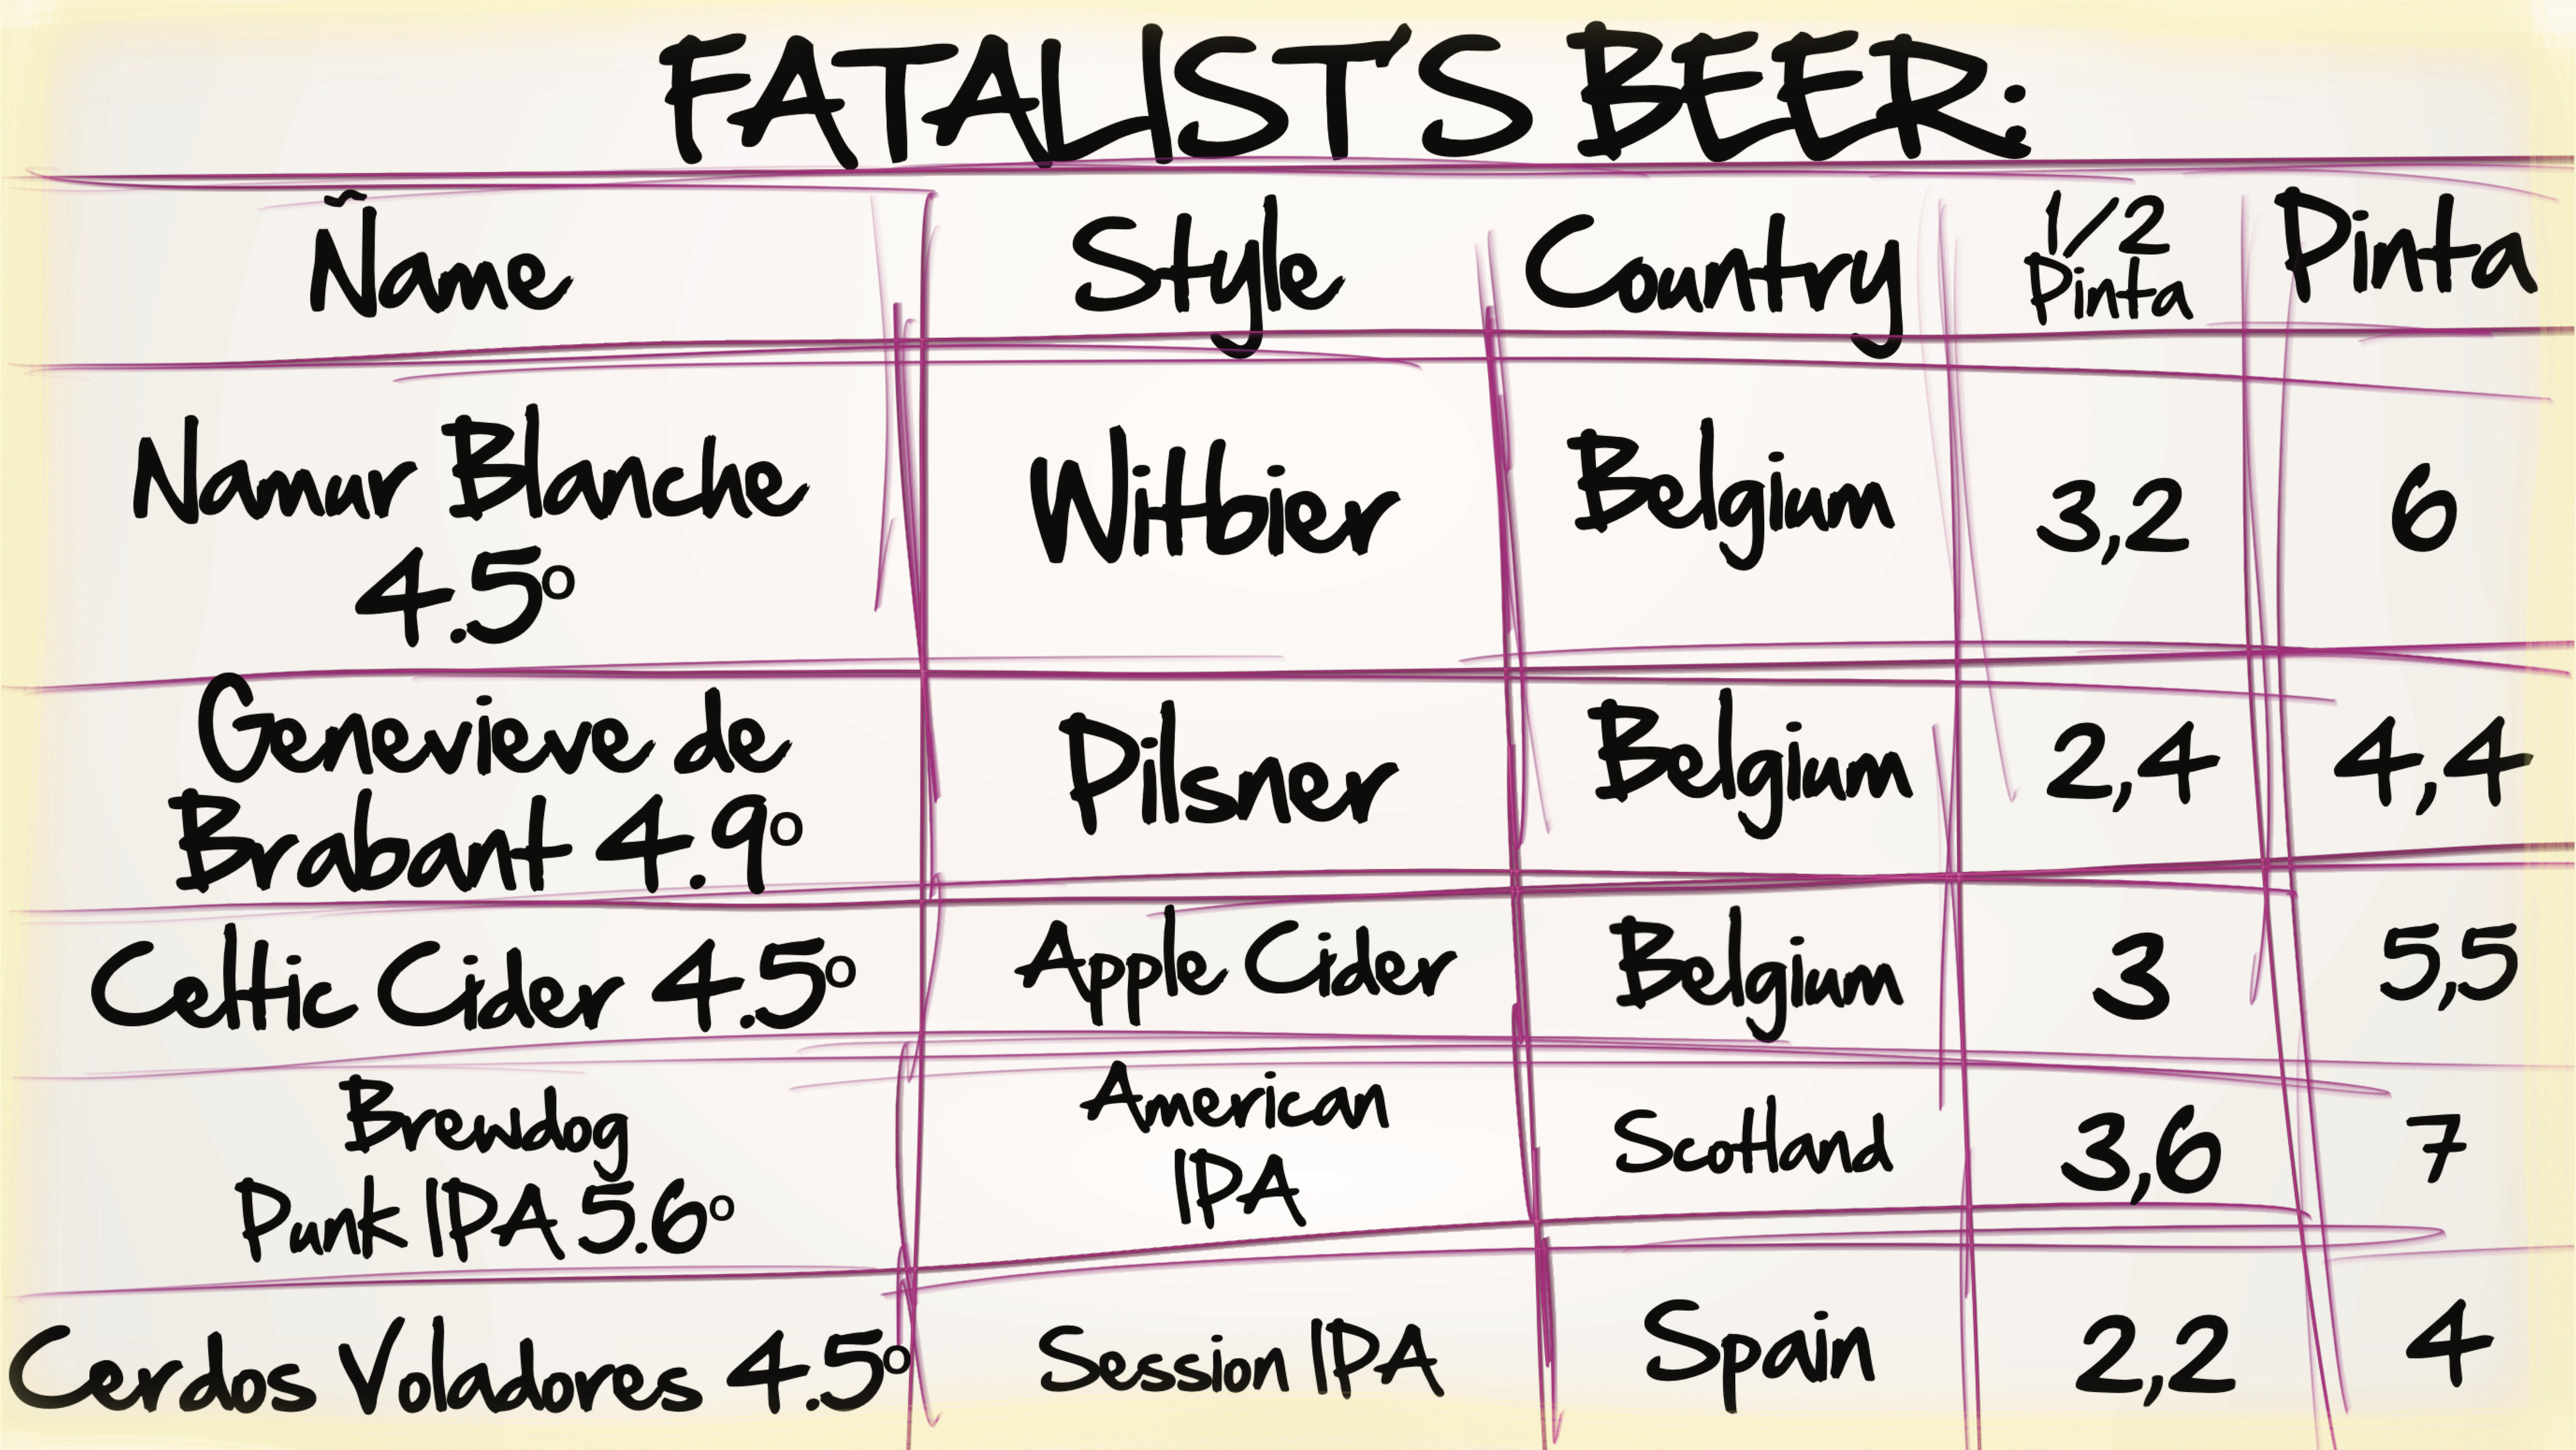 FATALIST'S BEER:
Ñame Style Country 1/2 Pinta Pinta
Namur Blanche 4.5º Witbier Belgium 3,2 6
Genevieve de Brabant 4.9º Pilsner Belgium 2,4 4,4
Celtic Cider 4.5º Apple Cider Belgium 3 5,5
Brewdog Punk IPA 5.6º American IPA Scotland 3,6 7
Cerdos Voladores 4.5º Session IPA Spain 2,2 4